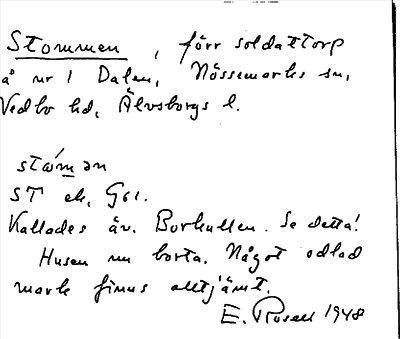 Stommen, förr soldattorp
å nr 1 Dalen, Nössemarks sn,
Vedbo hd, Älvsborgs l.
ståmən
ST ek, G61.
Kallades äv. Borkullen. Se detta!
Husen nu borta. Något odlad
mark finns alltjämt.
E. Rosell 1948